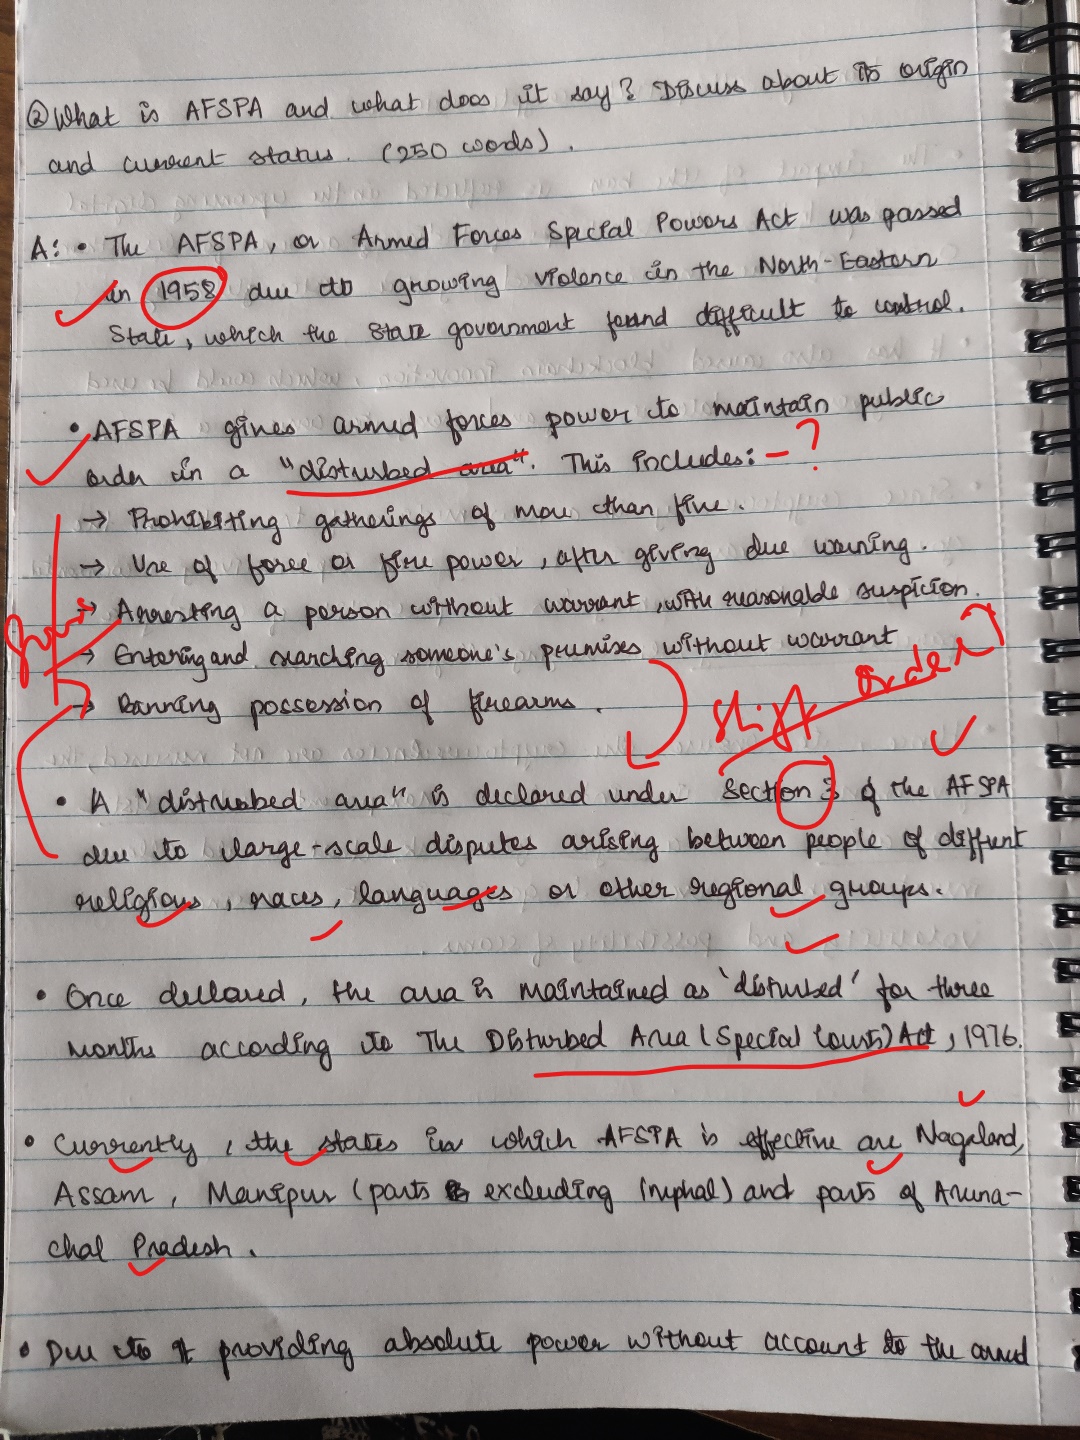 ② What is AFSPA and what does it say? Discuss about its origin
and current status. (250 words).
A: • The AFSPA, or Armed Forces Special Powers Act was passed
in 1958 due to growing violence in the North-Eastern
State, which the State government found difficult to control.
• AFSPA gives armed forces power to maintain public
order in a "disturbed area". This includes: - ?
→ Prohibiting gatherings of more than five.
→ Use of force or fire power, after giving due warning.
→ Arresting a person without warrant, with reasonable suspicion.
→ Entering and searching someone's premises without warrant
→ Banning possession of firearms.
Shift order
• A "disturbed area" is declared under Section 3 of the AFSPA
due to large-scale disputes arising between people of diffrent
religious, races, languages or other regional groups.
• Once declared, the area is maintained as 'disturbed' for three
months according to The Disturbed Area (Special Courts) Act, 1976.
• Currently, the states in which AFSPA is effective are Nagaland,
Assam, Manipur (parts excluding Imphal) and parts of Aruna-
chal Pradesh.
• Due to it providing absolute power without account to the armed